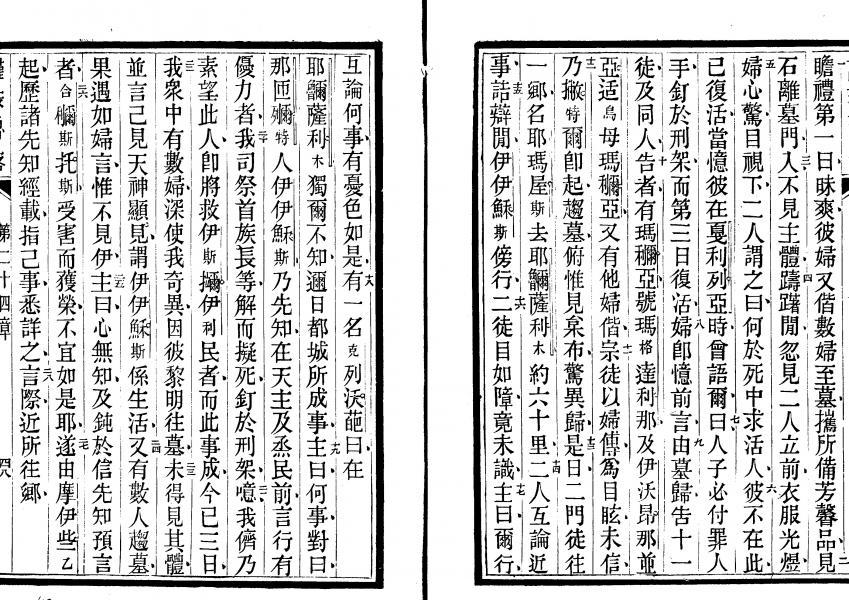 瞻禮第一日昧爽彼婦又偕數婦至墓攜所備芳馨品見
石離墓門入不見主體躊躇間忽見二人立前衣服光煜
婦心驚目視下二人謂之曰何於死中求活人彼不在此
已復活當憶彼在戛利列亞時曾語爾曰人子必付罪人
手釘於刑架而第三日復活婦卽憶前言由墓歸告十一
徒及同人告者有瑪穪亞號瑪格達利那及伊沃昂那並
亞适烏母瑪穪亞又有他婦偕宗徒以婦傳爲目眩未信
乃撇特爾卽起趨墓俯惟見枲布驚異歸是日二門徒往
一鄉名耶瑪屋斯去耶𬹃薩利木約六十里二人互論近
事話辯間伊伊穌斯傍行二徒目如障竟未識主曰爾行
互論何事有憂色如是有一名克列沃葩曰在
耶𬹃薩利木獨爾不知邇日都城所成事主曰何事對曰
那匝穪特人伊伊穌斯乃先知在天主及烝民前言行有
優力者我司祭首族長等解而擬死釘於刑架噫我儕乃
素望此人卽將救伊斯𤅀伊利民者而此事成今已三日
我衆中有數婦深使我奇異因彼黎明往墓未得見其體
並言己見天神顯見謂伊伊穌斯係生活又有數人趨墓
果遇如婦言惟不見伊主曰心無知及鈍於信先知預言
者合穪斯托斯受害而獲榮不宜如是耶遂由摩伊些乙
起歷諸先知經載指己事悉詳之言際近所往鄉
第二十四章